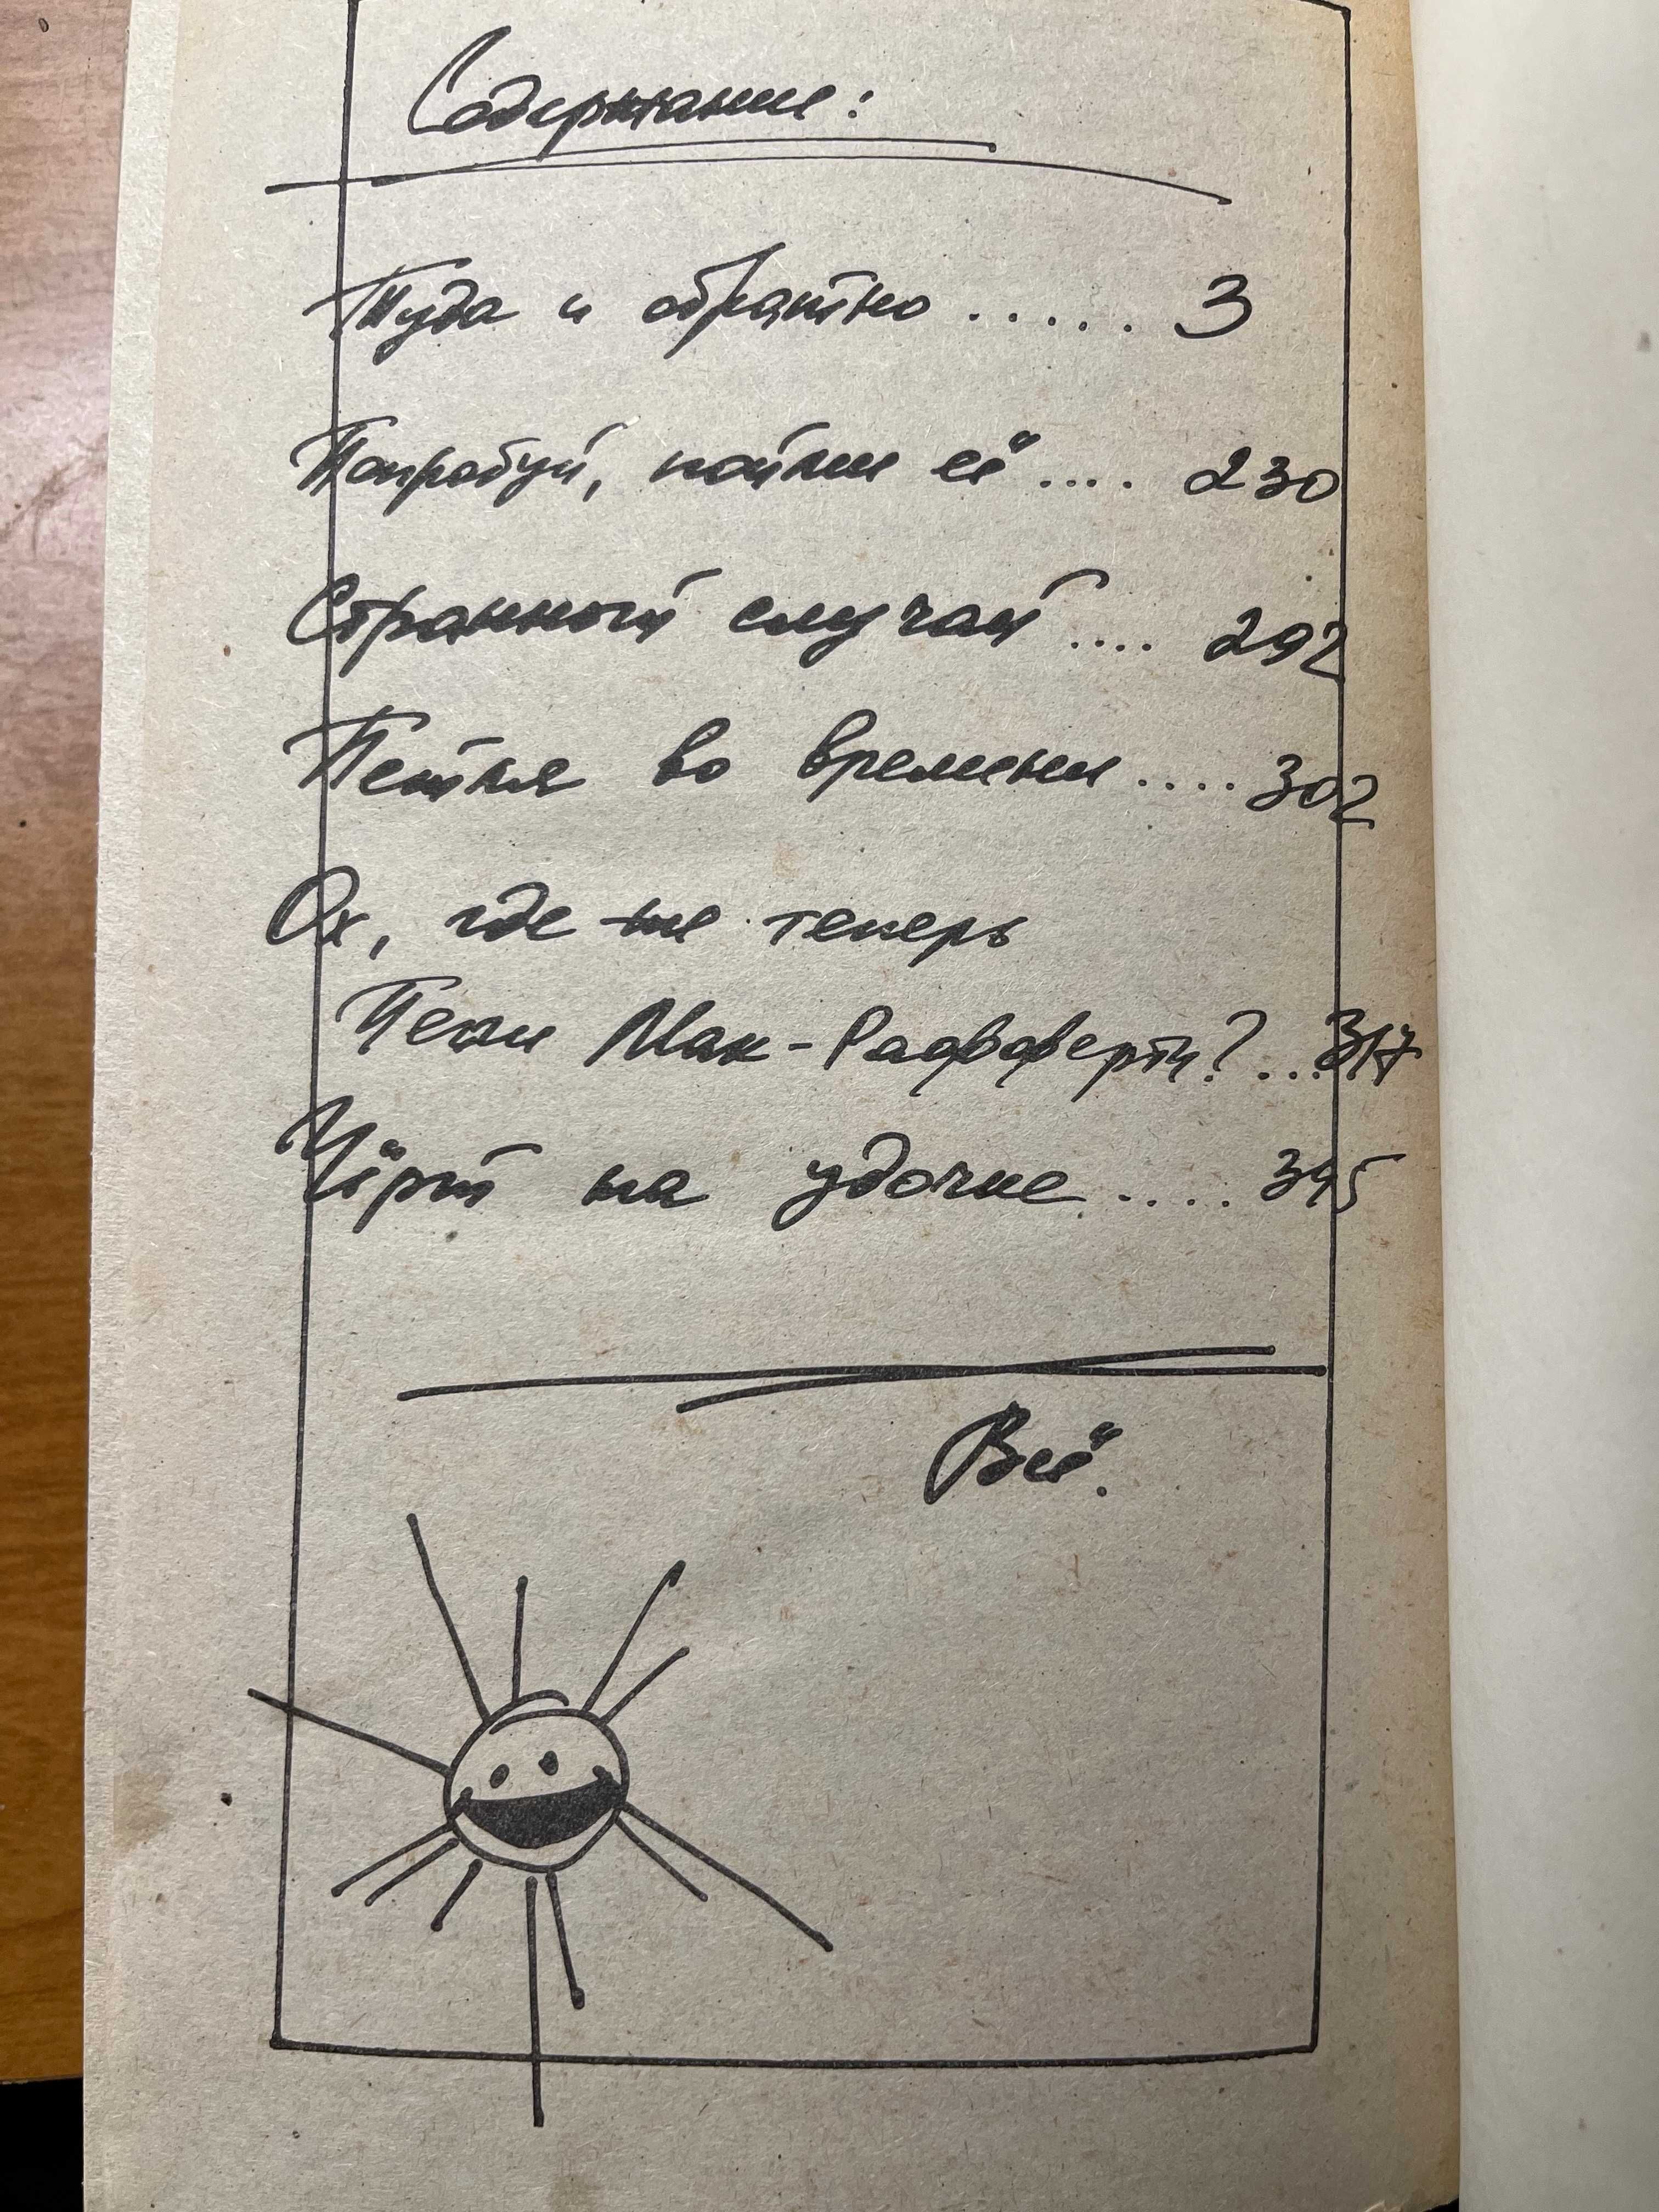 Содержание:
Туда и обратно ..... 3
Попробуй, пойми её .... 230
Странный случай .... 292
Петля во времени .... 302
Ох, где же теперь
Пегги Мак-Рафферти? ... 317
Чёрт на удочке .... 345
Всё.